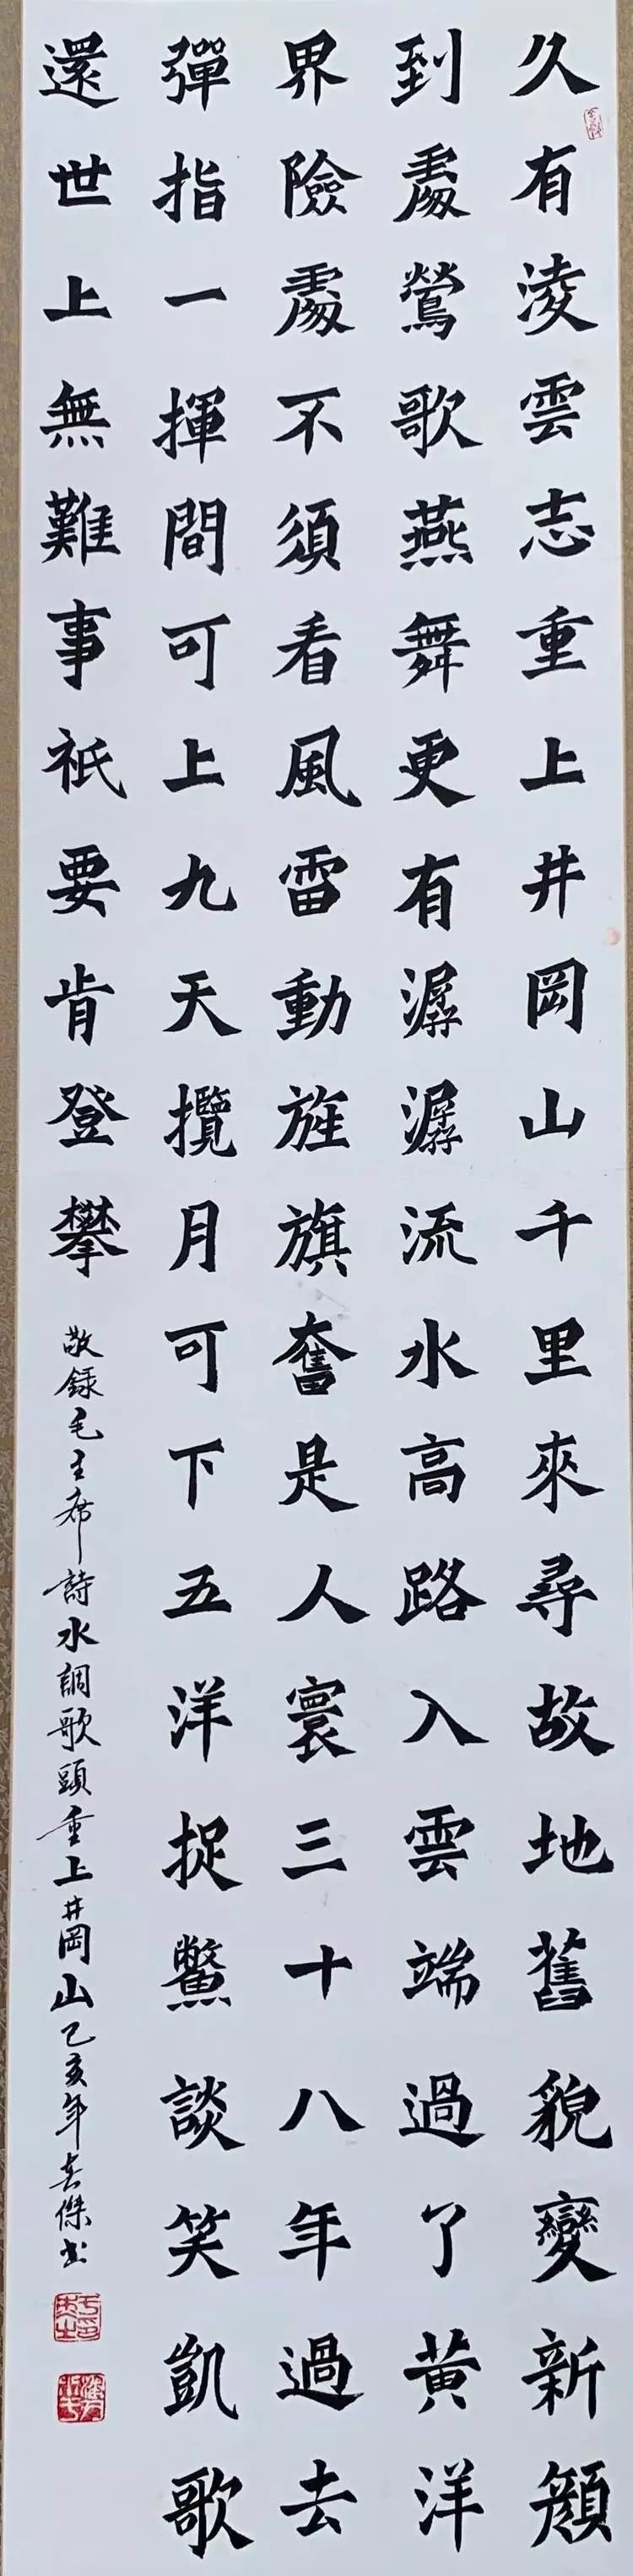 久有淩雲志重上井岡山千里來尋故地舊貌變新顔
到處鶯歌燕舞更有潺潺流水高路入雲端過了黃洋
界險處不須看風雷動旌旗奮是人寰三十八年過去
彈指一揮間可上九天攬月可下五洋捉鱉談笑凱歌
還世上無難事祇要肯登攀
敬録毛主席詩水調歌頭重上井岡山己亥年春傑書